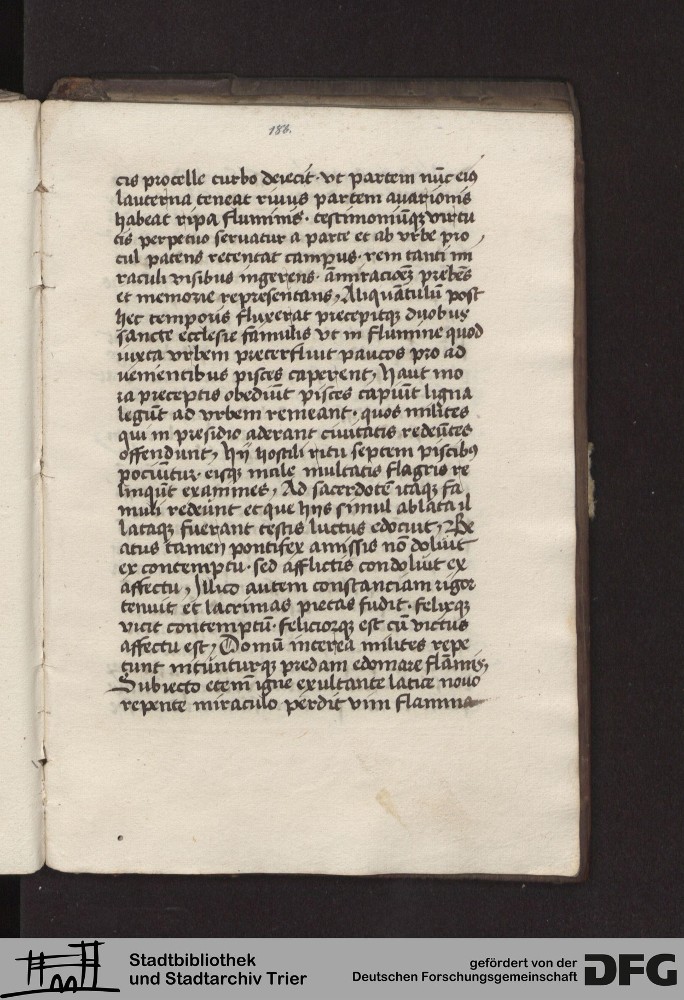 188.
cis procelle turbo deiecit · vt partem nūc eiꝰ
lauterna teneat riuus partem auarionis
habeat ripa fluminis · testimoniūqꝫ virtu
tis perpetuo seruatur a parte et ab vrbe pro
cul patens retentat campus · rem tanti mi
raculi visibus ingerens · āmiracioēꝫ prebēs
et memorie representans, Aliquātulū post
hec temporis fluxerat precepitqꝫ duobus
sancte ecclesie famulis vt in flumine quod
iuxta vrbem preterfluit paucos pro ad
uenientibus pisces caperent, haut mo
ra preceptis obediūt pisces capiūt ligna
legūt ad vrbem remeant · quos milites
qui in presidio aderant ciuitatis redeūtes
offendunt, hij hostili ritu septem piscibꝰ
pociūtur · eisqꝫ male multatis flagris re
linqūt exanimes, Ad sacerdotē itaqꝫ fa
muli redeūnt et que hijs simul ablata il
lataqꝫ fuerant testis luctus edocuit, Be
atus tamen pontifex amissis nō doluit
ex contemptu · sed afflictis condoluit ex
affectu, Illico autem constanciam rigor
tenuit et lacrimas pietas fudit · felixqꝫ
vicit contemptū · feliciorqꝫ est cū victus
affectu est, Domū interea milites repe
tunt nitūnturqꝫ predam edomare flāmis,
Subiecto etem̄ igne exultante latice nouo
repente miraculo perdit vim flamma
Stadtbibliothek
und Stadtarchiv Trier
gefördert von der
Deutschen Forschungsgemeinschaft
DFG